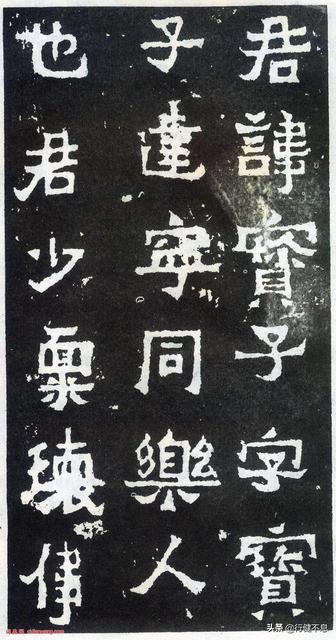 君諱寶子字寶
子建寧同樂人
也君少稟瓌偉
头条 @行健不息